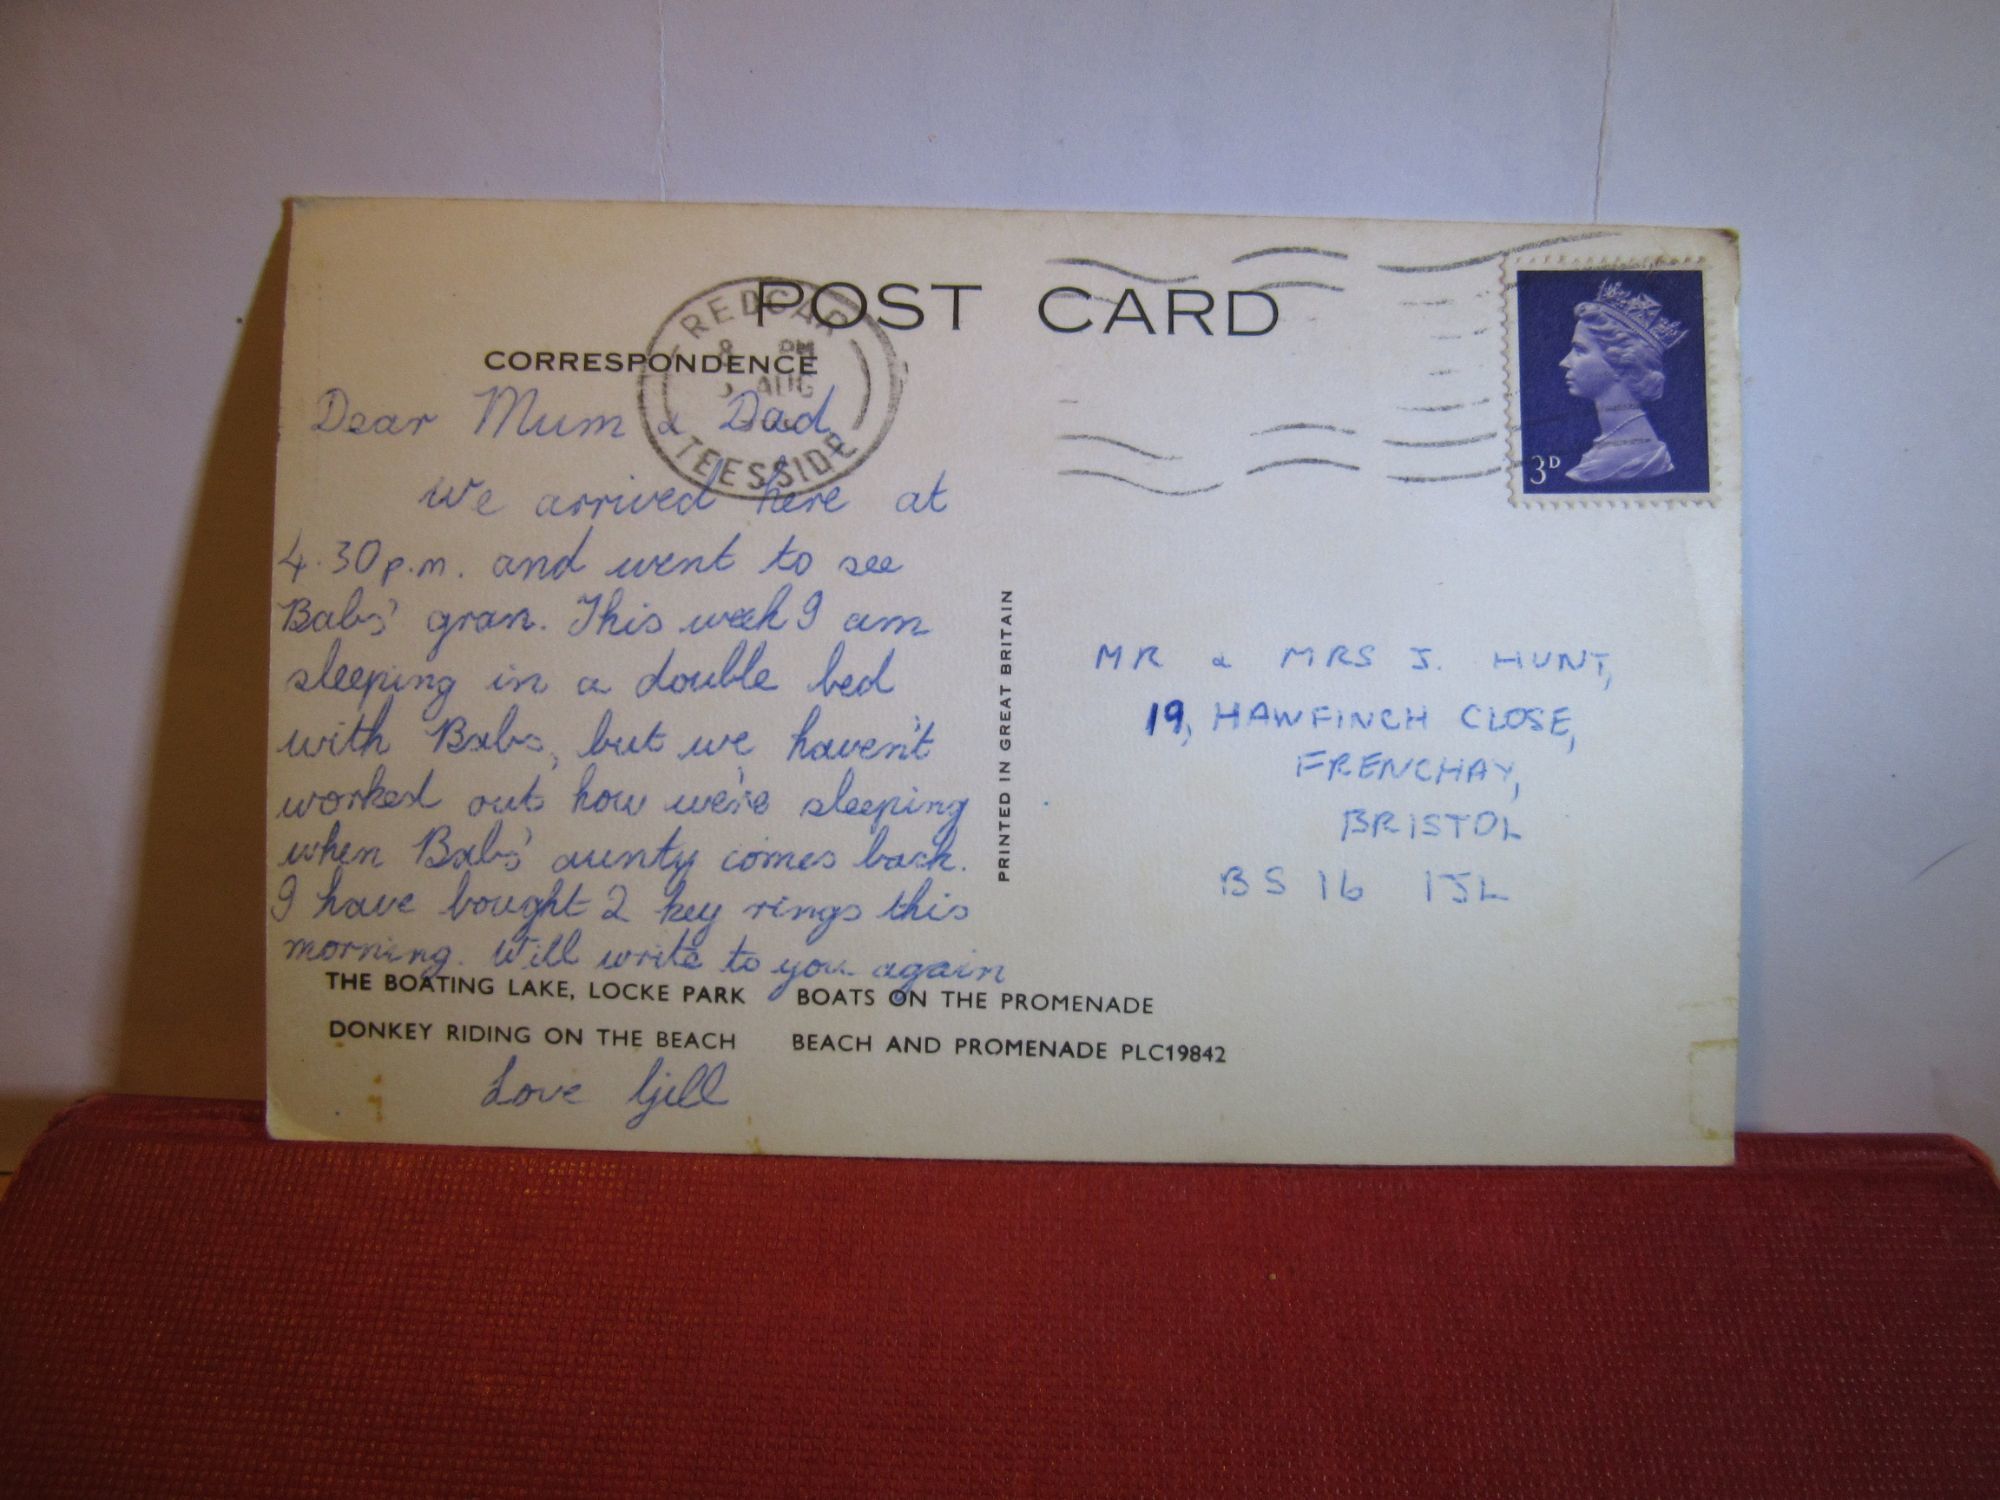 POST CARD
CORRESPONDENCE
REDCAR
8 PM
AUG
TEESSIDE
3D
Dear Mum & Dad,
We arrived here at
4.30p.m. and went to see
Babs' gran. This week I am
sleeping in a double bed
with Babs, but we haven't
worked out how we're sleeping
when Babs' aunty comes back.
I have bought 2 key rings this
morning. Will write to you again
THE BOATING LAKE, LOCKE PARK BOATS ON THE PROMENADE
DONKEY RIDING ON THE BEACH BEACH AND PROMENADE PLC19842
Love Gill
PRINTED IN GREAT BRITAIN
MR & MRS J. HUNT,
19, HAWFINCH CLOSE,
FRENCHAY,
BRISTOL
BS 16 1JL